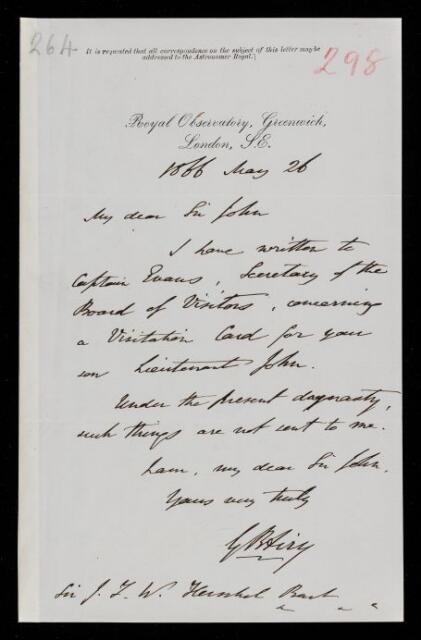 264
It is requested that all correspondence on the subject of this letter may be
addressed to the Astronomer Royal.
298
Royal Observatory, Greenwich,
London, S.E.
1866 May 26
My dear Sir John
I have written to
Captain Evans, Secretary of the
Board of Visitors, concerning
a Visitation Card for your
son Lieutenant John.
Under the present daynasty,
such things are not sent to me.
I am, my dear Sir John,
Yours very truly
G B Airy
Sir J. F. W. Herschel Bart